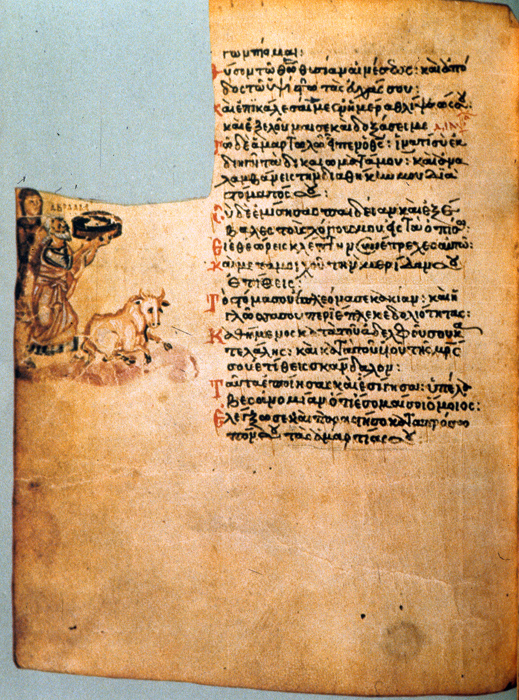 ΑΒΡΑΑΜ
των πίομαι:
Θύσον τῷ θῶ θυσίαν αἰνέσεως: καὶ ἀπό
δος τῷ ὑψίστῳ τὰς εὐχάς σου:
Καὶ ἐπικάλεσαί με ἐν ἡμέρα θλίψεώς σου:
καὶ ἐξελοῦμαί σε καὶ δοξάσεις με
Τῷ δὲ ἁμαρτωλῶ εἶπεν ὁ θς: ἱνατί σὺ ἐκ
διηγῆ τὰ δικαιώματά μου: καὶ ἀνα
λαμβάνεις τὴν διαθήκην μου διὰ
στόματός σου:
Σὺ δὲ ἐμίσησας παιδείαν καὶ ἐξέ
βαλες τοὺς λόγους μου εἰς τὰ ὀπίσω:
Εἰ ἐθεώρεις κλέπτην συνέτρεχες αὐτῶ:
Καὶ μετὰ μοιχοῦ τὴν μερίδα σου
ἐτίθεις:
Τὸ στόμα σου ἐπλεόνασε κακίαν: καὶ ἡ
γλῶσσά σου περιέπλεκε δολιότητας:
Καθήμενος κατὰ τοῦ ἀδελφοῦ σου κα
τελάλης: καὶ κατὰ τοῦ υἱοῦ τῆς μρς
σου ἐτίθεις σκάνδαλον:
Ταῦτα ἐποίησας καὶ ἐσίγησα: ὑπέλα
βες ἀνομίαν ὅτι ἔσομαί σοι ὅμοιος:
Ἐλέγξω σε καὶ παραστήσω κατὰ πρόσω
πόν σου τὰς ἁμαρτίας σου: